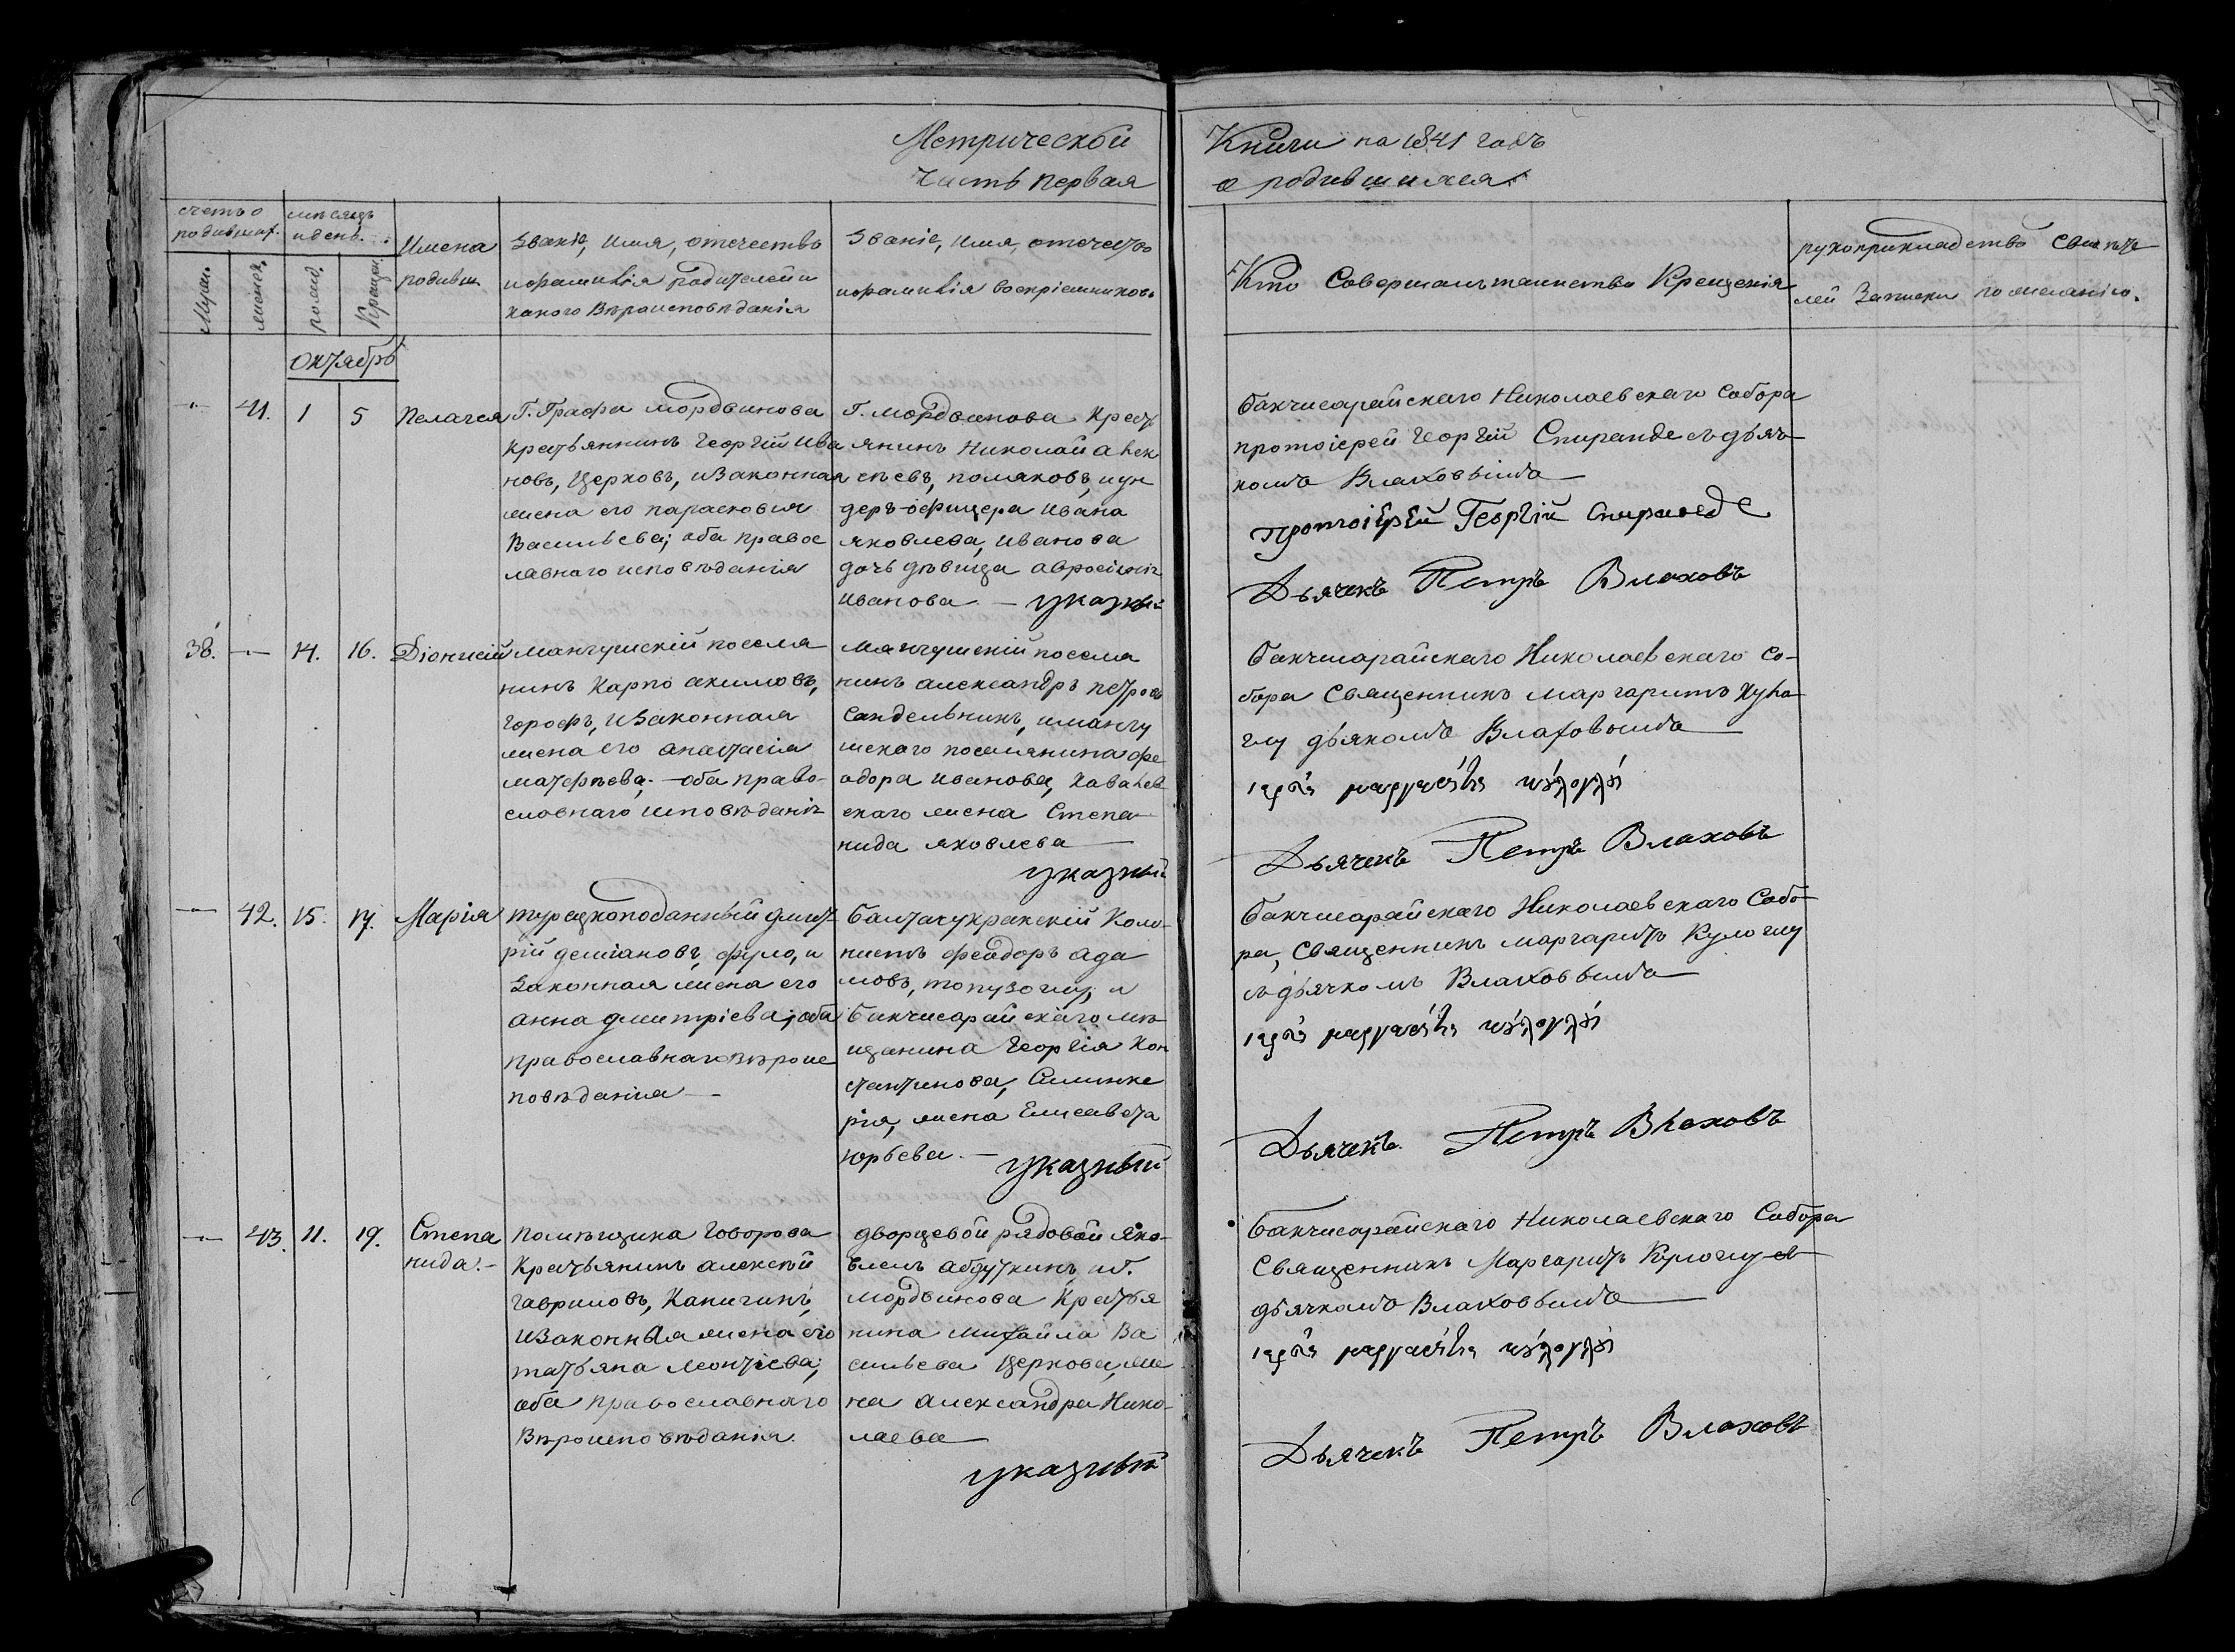 Метрической
Часть Первая
Книги на 1841 годъ
о родившихся
счетъ о родивших.
мѣсяцъ и день.
Муж.
женск.
рожд.
Крещен.
Имена
родивш.
Званіе, имя, отечество
и фамилія родителей и
какого Вѣроисповѣданія
Званіе, имя, отечество
и фамилія воспріемниковъ
Кто Совершалъ таинство Крещенія
рукоприкладство свидѣте
лей Записки по желанію.
октябрь
— 41. 1 5 Пелагея
Г. Графа мордвинова
крестьянинъ Георгій Ива
новъ, Церковъ, и Законная
жена его парасковія
Васильева; оба правос
лавнаго исповѣданія
Г. мордвинова Крест
янинъ Николай алек
сѣевъ, поляковъ, и ун
деръ-офицера Ивана
яковлева, Иванова
дочь дѣвица
Иванова — указный
бакчисарайскаго Николаевскаго Собора
протоіерей Георгій Спиранде съ дьяч-
комъ Влаховымъ —
Протоіерей Георгій Спиранде
Дьячекъ Петръ Влаховъ
38. — 14. 16. Діонисій
мангушскій поселя
нинъ Карпъ акимовъ,
горофъ, и Законная
жена его анастасія
матфѣева; — оба право-
славнаго исповѣданія
Мангушскій поселя
нинъ александръ петровъ
Сандельникъ, и мангу
шскаго поселянина фе
одора иванова,
скаго жена Степа
нида яковлева —
указный
бакчисарайскаго Николаевскаго со-
бора Священникъ маргаритъ Куло
глу дьякомъ Влаховымъ —
Дьячекъ Петръ Влаховъ
— 42. 15. 17. Марія
турецкоподанный дмит
рій деміановъ, фуло, и
Законная жена его
анна дмитріева; оба
православнаго Вѣроис
повѣданія —
балтачукракскій Коло-
нистъ феодоръ ада
мовъ, топузоглу, и
бакчисарайскаго мѣ
щанина Георгія Кон
стантинова,
рія, жена Елисавета
юрьева. — указный
бакчисарайскаго Николаевскаго Собо-
ра, Священникъ маргаритъ Кулоглу
съ дьячкомъ Влаховымъ —
Дьячекъ. Петръ Влаховъ
— 43. 11. 19. Степа
нида. —
помѣщика Говорова
Крестьянинъ алексѣй
гавриловъ, Капигинъ,
и Законная жена его
татьяна леонтіева;
оба православнаго
Вѣроисповѣданія.
дворцевой рядовой яко-
влевъ и г.
мордвинова Крестья
нина михайла Ва
сильева Церкова, же
на александра Нико-
лаева —
указный
бакчисарайскаго Николаевскаго Собора
Священникъ Маргаритъ Кулоглу съ
дьячкомъ Влаховымъ —
Дьячекъ Петръ Влаховъ